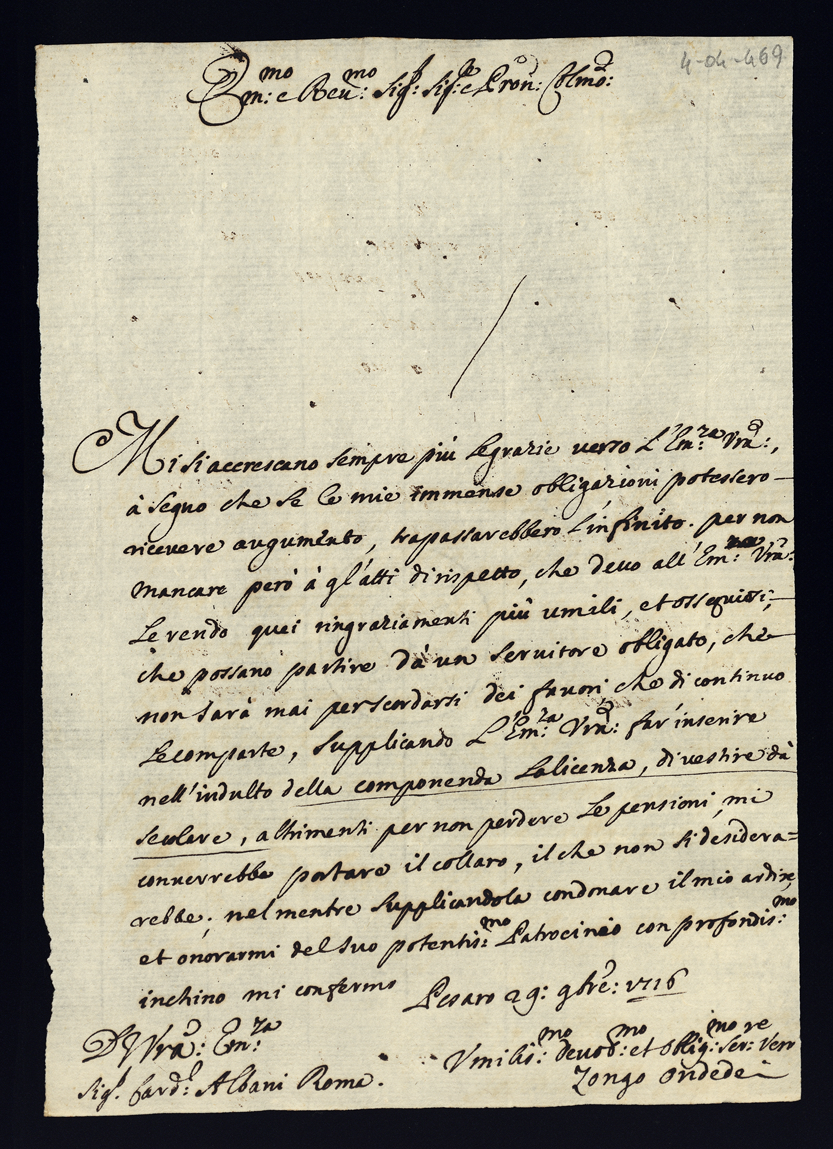 4-04-469
Em:mo e Reu:mo Sig:r Sig:re e Pron: Colmo:
Mi si accrescano sempre più le grazie verso L'Em:za Vra:,
à segno che se le mie immense obligazioni potessero
riceuere augumento, trapassarebbero l'infinito. per non
mancare però à gl'atti di rispetto, che deuo all'Em:za Vra:
Le rendo quei ringraziamenti più umili, et ossequiosi,
che possano partire dà un seruitore obligato, che
non sarà mai per scordarsi dei fauori, che di continuo
Le comparte, supplicando L'Em:za Vra: far'inserire
nell'indulto della componenda La licenza, di vestire dà
secolare, altrimenti per non perdere Le pensioni, mi
conuerrebbe portare il collaro, il che non si desidera=
rebbe; nel mentre supplicandola condonare il mio ardire,
et onorarmi del suo potentis:mo Patrocinio con profondis:mo
inchino mi confermo
Pesaro 29: 9bre: 1716
D' Vra: Em:za
Vmilis:mo deuot:mo et Oblig:mo Ser:re Vero
Sig.r Card:l Albani Roma.
Zongo Ondedei